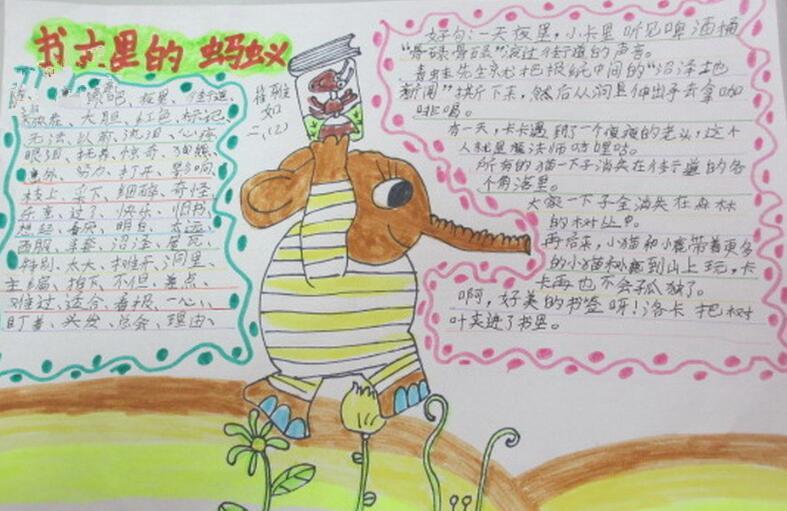 书本里的蚂蚁
崔班
如
二、(2)
夜里、街道、
大胆、红色、标记、
无法、以前、沉阳、心疼
眼泪、抚养、惊奇、孤独、
意外、努力、打开、影响
枝上、采下、细碎、奇怪
乐意、过了、快乐、旧书
想起、春夜、明白、永远
西服、手套、沼泽、屋瓦
特别、太太、树桩子、洞里
主编、拍下、不但、差点、
难过、适合、着急、一心、
盯着、头发、总会、理由、
好句:一天夜里,小卡里听见啤酒桶
“骨碌骨碌”滚过街道的声音。
青蛙先生就把报纸中间的“沼泽地
新闻”拱下来,然后从洞里伸出手去拿咖
啡喝。
有一天,卡卡遇到了一个傻傻的老头,这个
人就是魔法师咕哩咕。
所有的猫一下子消失在街道的各
个角落里。
大家一下子全消失在森林
的树丛中。
再后来,小猫和小鹿带着更多
的小猫和小鹿到山上玩,卡
卡再也不会孤独了。
啊,好美的书签呀!洛卡把树
叶夹进了书里。